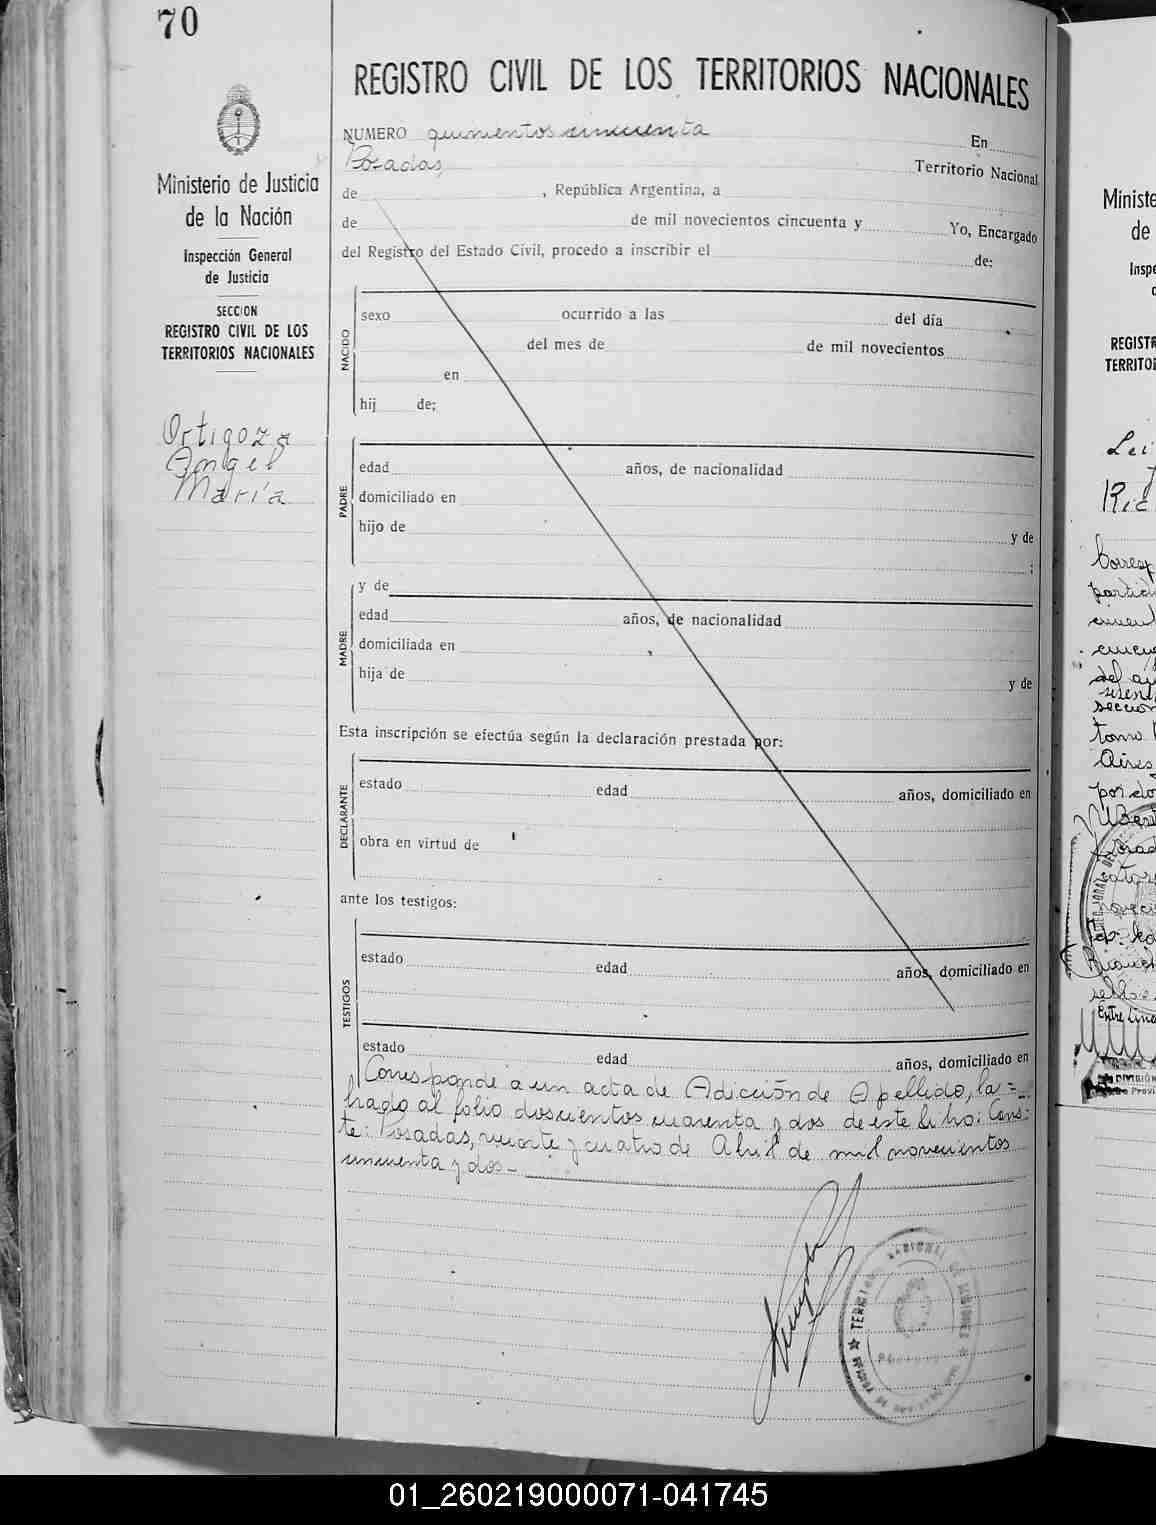 70
Ministerio de Justicia
de la Nación
Inspección General
de Justicia
SECCION
REGISTRO CIVIL DE LOS
TERRITORIOS NACIONALES
Ortigoza
Angel
María
REGISTRO CIVIL DE LOS TERRITORIOS NACIONALES
NUMERO quinientos cincuenta En
Posadas, Territorio Nacional
de , República Argentina, a
de de mil novecientos cincuenta y Yo, Encargado
del Registro del Estado Civil, procedo a inscribir el de:
NACIDO
sexo ocurrido a las del día
del mes de de mil novecientos
en
hij de;
PADRE
edad años, de nacionalidad
domiciliado en
hijo de y de
;
MADRE
y de
edad años, de nacionalidad
domiciliada en
hija de y de
Esta inscripción se efectúa según la declaración prestada por:
DECLARANTE
estado edad años, domiciliado en
obra en virtud de
ante los testigos:
TESTIGOS
estado edad años, domiciliado en
estado edad años, domiciliado en
Corresponde a un acta de Adición de Apellido, la=
brado al folio doscientos cuarenta y dos de este Libro: Cons=
te: Posadas, veinte y cuatro de Abril de mil novecientos
cincuenta y dos-
TERRITORIO NACIONAL DE MISIONES
Ministe
de
Inspe
REGISTR
TERRITOR
Lei
Ric
Corresp
partid
del
sección
tomo
Aires
por do
Entre líneas
01_260219000071-041745